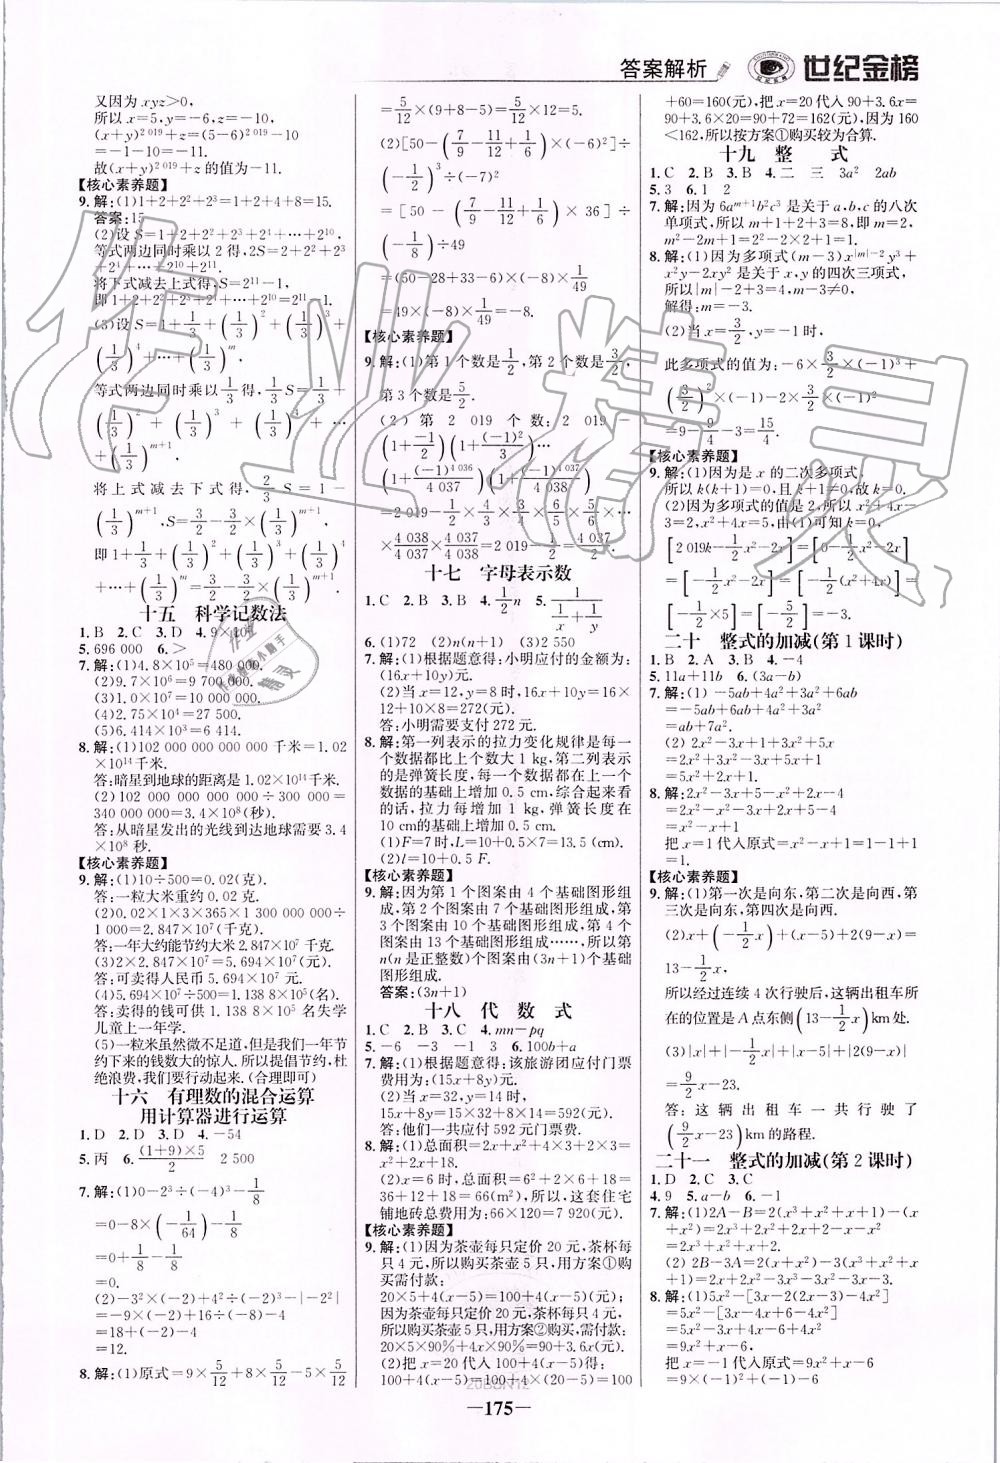 答案解析 世纪金榜
又因为xyz>0,
所以x=5,y=-6,z=-10,
(x+y)^{2 019}+z=(5-6)^{2 019}-10
=-1-10=-11.
故(x+y)^{2 019}+z的值为-11.
【核心素养题】
9.解:(1)1+2+2²+2³=1+2+4+8=15.
答案:15
(2)设S=1+2+2²+2³+2⁴+…+2¹⁰,
等式两边同时乘以2得,2S=2+2²+2³
+2⁴+…+2¹⁰+2¹¹,
将下式减去上式得,S=2¹¹-1,
即1+2+2²+2³+2⁴+…+2¹⁰=2¹¹-1.
(3)设S=1+1/3+(1/3)²+(1/3)³+
(1/3)⁴+…+(1/3)^m,
等式两边同时乘以1/3得,1/3S=1/3+
(1/3)²+(1/3)³+(1/3)⁴+…
+(1/3)^{m+1}.
将上式减去下式得,2/3S=1-
(1/3)^{m+1},S=3/2-3/2×(1/3)^{m+1},
即1+1/3+(1/3)²+(1/3)³+(1/3)⁴
+…+(1/3)^m=3/2-3/2×(1/3)^{m+1}.
十五 科学记数法
1.B 2.C 3.D
5.696 000 6.>
7.解:(1)4.8×10⁵=480 000.
(2)9.7×10⁶=9 700 000.
(3)1.0×10⁷=10 000 000.
(4)2.75×10⁴=27 500.
(5)6.414×10³=6 414.
8.解:(1)102 000 000 000 000千米=1.02
×10¹⁴千米.
答:暗星到地球的距离是1.02×10¹⁴千米.
(2)102 000 000 000 000÷300 000=
340 000 000=3.4×10⁸(秒).
答:从暗星发出的光线到达地球需要3.4
×10⁸秒.
【核心素养题】
9.解:(1)10÷500=0.02(克).
答:一粒大米重约0.02克.
(2)0.02×1×3×365×1 300 000 000÷
1 000=2.847×10⁷(千克).
答:一年大约能节约大米2.847×10⁷千克.
(3)2×2.847×10⁷=5.694×10⁷(元).
答:可卖得人民币5.694×10⁷元.
(4)5.694×10⁷÷500=1.138 8×10⁵(名).
答:卖得的钱可供1.138 8×10⁵名失学
儿童上一年学.
(5)一粒米虽然微不足道,但是我们一年节
约下来的钱数大的惊人.所以提倡节约,杜
绝浪费,我们要行动起来.(合理即可)
十六 有理数的混合运算
用计算器进行运算
1.D 2.D 3.D 4.-54
5.丙 6.(1+9)×5/2 2 500
7.解:(1)0-2³÷(-4)³-1/8
=0-8×(-1/64)-1/8
=0+1/8-1/8
=0.
(2)-3²×(-2)+4²÷(-2)³-|-2²|
=-9×(-2)+16÷(-8)-4
=18+(-2)-4
=12.
8.解:(1)原式=9×5/12+8×5/12-5×5/12
=5/12×(9+8-5)=5/12×12=5.
(2)[50-(7/9-11/12+1/6)×(-6)²]÷
(-1/2)³÷(-7)²
=[50-(7/9-11/12+1/6)×36]÷
(-1/8)÷49
=(50-28+33-6)×(-8)×1/49
=49×(-8)×1/49=-8.
【核心素养题】
9.解:(1)第1个数是1/2,第2个数是3/2,
第3个数是5/2.
(2)第2 019个数:2 019-
(1+-1/2)(1+(-1)²/3)…
(1+(-1)^{4 036}/4 037)(1+(-1)^{4 037}/4 038)
=2 019-1/2×4/3×3/4×6/5×5/6×…
×4 038/4 037×4 037/4 038=2 019-1/2=4 037/2.
十七 字母表示数
1.C 2.B 3.B 4.1/2n 5.1/(1/x+1/y)
6.(1)72 (2)n(n+1) (3)2 550
7.解:(1)根据题意得:小明应付的金额为:
(16x+10y)元.
(2)当x=12,y=8时,16x+10y=16×
12+10×8=272(元).
答:小明需要支付272元.
8.解:第一列表示的拉力变化规律是每一
个数据都比上个数大1 kg,第二列表示
的是弹簧长度,每一个数据都在上一个
数据的基础上增加0.5 cm,综合起来看
的话,拉力每增加1 kg,弹簧长度在
10 cm的基础上增加0.5 cm.
(1)F=7时,L=10+0.5×7=13.5(cm).
(2)l=10+0.5 F.
【核心素养题】
9.解:因为第1个图案由4个基础图形组
成,第2个图案由7个基础图形组成,第
3个图案由10个基础图形组成,第4个
图案由13个基础图形组成……,所以第
n(n是正整数)个图案由(3n+1)个基础
图形组成.
答案:(3n+1)
十八 代数式
1.C 2.C 3.C 4.mn-pq
5.-6 -3 -1 3 6.100b+a
7.解:(1)根据题意得,该旅游团应付门票
费用为:(15x+8y)元.
(2)当x=32,y=14时,
15x+8y=32×15+8×14=592(元).
答:他们一共应付592元门票费.
8.解:(1)总面积=2x+x²+4×3+2×3=
x²+2x+18(m²).
(2)x=6时,总面积=6²+2×6+18=
36+12+18=66(m²),所以,这套住宅
铺地砖总费用为:66×120=7 920(元).
【核心素养题】
9.解:(1)因为茶壶每只定价20元,茶杯每
只4元,所以购买茶壶5只,用方案①购
买需付款:
20×5+4(x-5)=100+4(x-5)(元);
因为茶壶每只定价20元,茶杯每只4元,
所以购买茶壶5只,用方案②购买,需付款:
20×5×90%+4x×90%=90+3.6x(元).
(2)把x=20代入100+4(x-5)得:
100+4(x-5)=100+4(20-5)=100
+60=160(元),把x=20代入90+3.6x=
90+3.6×20=90+72=162(元),因为160
<162,所以按方案①购买较为合算.
十九 整式
1.C 2.B 3.B 4.二 三 3a² 2ab
5.3 6.1 2
7.解:因为6a^{m+1}b²c³是关于a,b,c的八次
单项式,所以m+1+2+3=8,即m=2,
m²-2m+1=2²-2×2+1=1.
8.解:(1)因为多项式(m-3)x^{|m|-2}y³+
x²y-2xy²是关于x,y的四次三项式,
所以|m|-2+3=4,m-3≠0,
解得:m=-3.
(2)当x=3/2,y=-1时,
此多项式的值为:-6×3/2×(-1)³+
(3/2)²×(-1)-2×3/2×(-1)²
=9-9/4-3=15/4.
【核心素养题】
9.解:(1)因为是x的二次多项式,
所以k(k+1)=0,且k-1≠0,故k=0.
(2)因为多项式的值是2,所以x²+4x-
3=2,x²+4x=5,由(1)可知k=0,
[2 019k-1/2x²-2x]=[0-1/2x²-2x]
=[-1/2x²-2x]=[-1/2(x²+4x)]=
[-1/2×5]=[-5/2]=-3.
二十 整式的加减(第1课时)
1.B 2.A 3.B 4.-4
5.11a+11b 6.(3a-b)
7.解:(1)-5ab+4a²+3a²+6ab
=-5ab+6ab+4a²+3a²
=ab+7a².
(2)2x²-3x+7-3x-5+2x²
=2x²+2x²-3x-3x+7-5
=4x²-6x+2.
8.解:2x²-3x+5-x²+2x-4
=2x²-x²-3x+2x+5-4
=x²-x+1
把x=1代入原式=x²-x+1=1-1+1
=1.
【核心素养题】
9.解:(1)第一次是向东,第二次是向西,第
三次是向东,第四次是向西.
(2)x+(-1/2x)+(x-5)+2(9-x)=
13-1/2x,
所以经过连续4次行驶后,这辆出租车所
在的位置是A点东侧(13-1/2x)km处.
(3)|x|+|-1/2x|+|x-5|+|2(9-x)|=
9/2x-23,
答:这辆出租车一共行驶了
(9/2x-23)km的路程.
二十一 整式的加减(第2课时)
1.D 2.C 3.C
4.9 5.a-b 6.-1
7.解:(1)2A-B=2(x³+x²+x+1)-(x+
x²)=2x³+2x²+2x+2-x-x²
=2x³+x²+x+2.
(2)2B-3A=2(x+x²)-3(x³+x²+x+
1)=2x+2x²-3x³-3x²-3x-3
=-3x³-x²-x-3.
8.解:(1)5x²-[3x-2(2x-3)-4x²]
=5x²-[3x-4x+6-4x²]
=5x²-3x+4x-6+4x²
=9x²+x-6.
把x=-1代入得:9x²+x-6=9×(-1)²
-1-6=2.
20BSN12
—175—